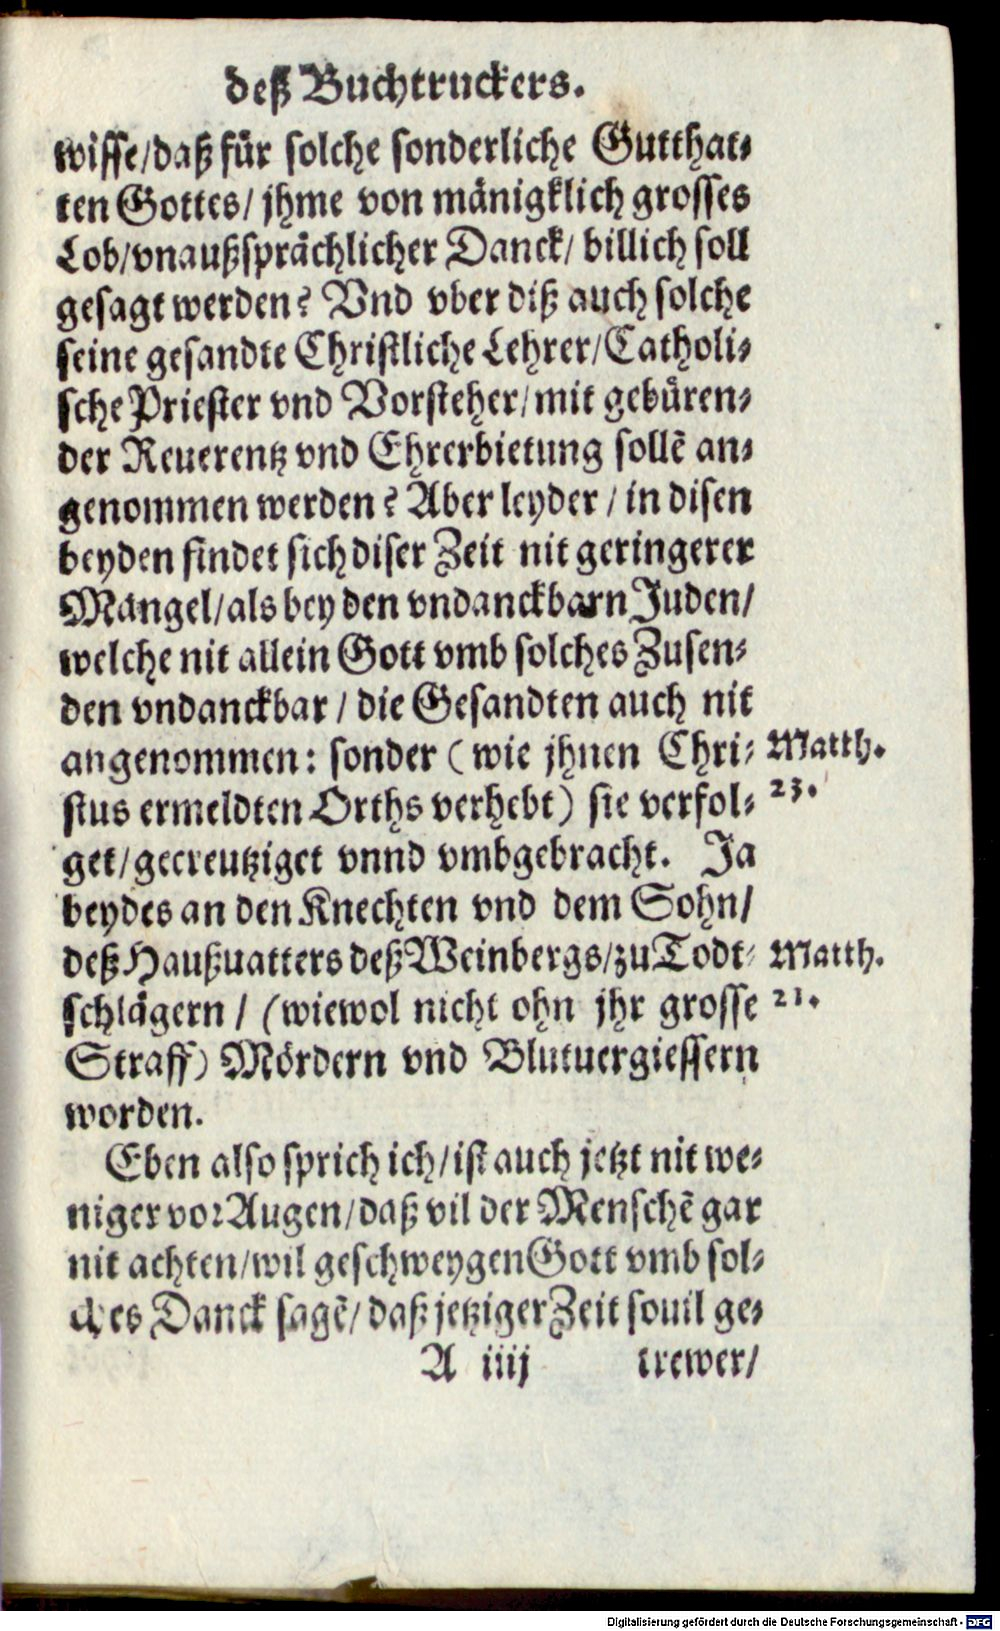 deß Buchtruckers.
wisse/daß für solche sonderliche Gutthat-
ten Gottes/ jhme von mänigklich grosses
Lob/vnaußsprächlicher Danck/ billich soll
gesagt werden? Vnd vber diß auch solche
seine gesandte Christliche Lehrer/Catholi-
sche Priester vnd Vorsteher/mit gebüren-
der Reuerentz vnd Ehrerbietung sollẽ an-
genommen werden? Aber leyder / in disen
beyden findet sich diser Zeit nit geringerer
Mangel/als bey den vndanckbarn Juden/
welche nit allein Gott vmb solches Zusen-
den vndanckbar / die Gesandten auch nit
angenommen: sonder (wie jhnen Chri- Matth.
stus ermeldten Orths verhebt) sie verfol- 23.
get/gecreutziget vnnd vmbgebracht. Ja
beydes an den Knechten vnd dem Sohn/
deß Haußuatters deß Weinbergs/zu Todt- Matth.
schlägern / (wiewol nicht ohn jhr grosse 21.
Straff) Mördern vnd Blutuergiessern
worden.
Eben also sprich ich/ist auch jetzt nit we-
niger vor Augen/daß vil der Menschẽ gar
nit achten/wil geschweygen Gott vmb sol-
ches Danck sagẽ/ daß jetziger Zeit souil ge-
A iiij trewer/
Digitalisierung gefördert durch die Deutsche Forschungsgemeinschaft - DFG